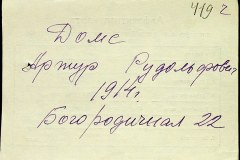 419 г
Домс
Артур Рудольфович
1914г.
Богородичная 22